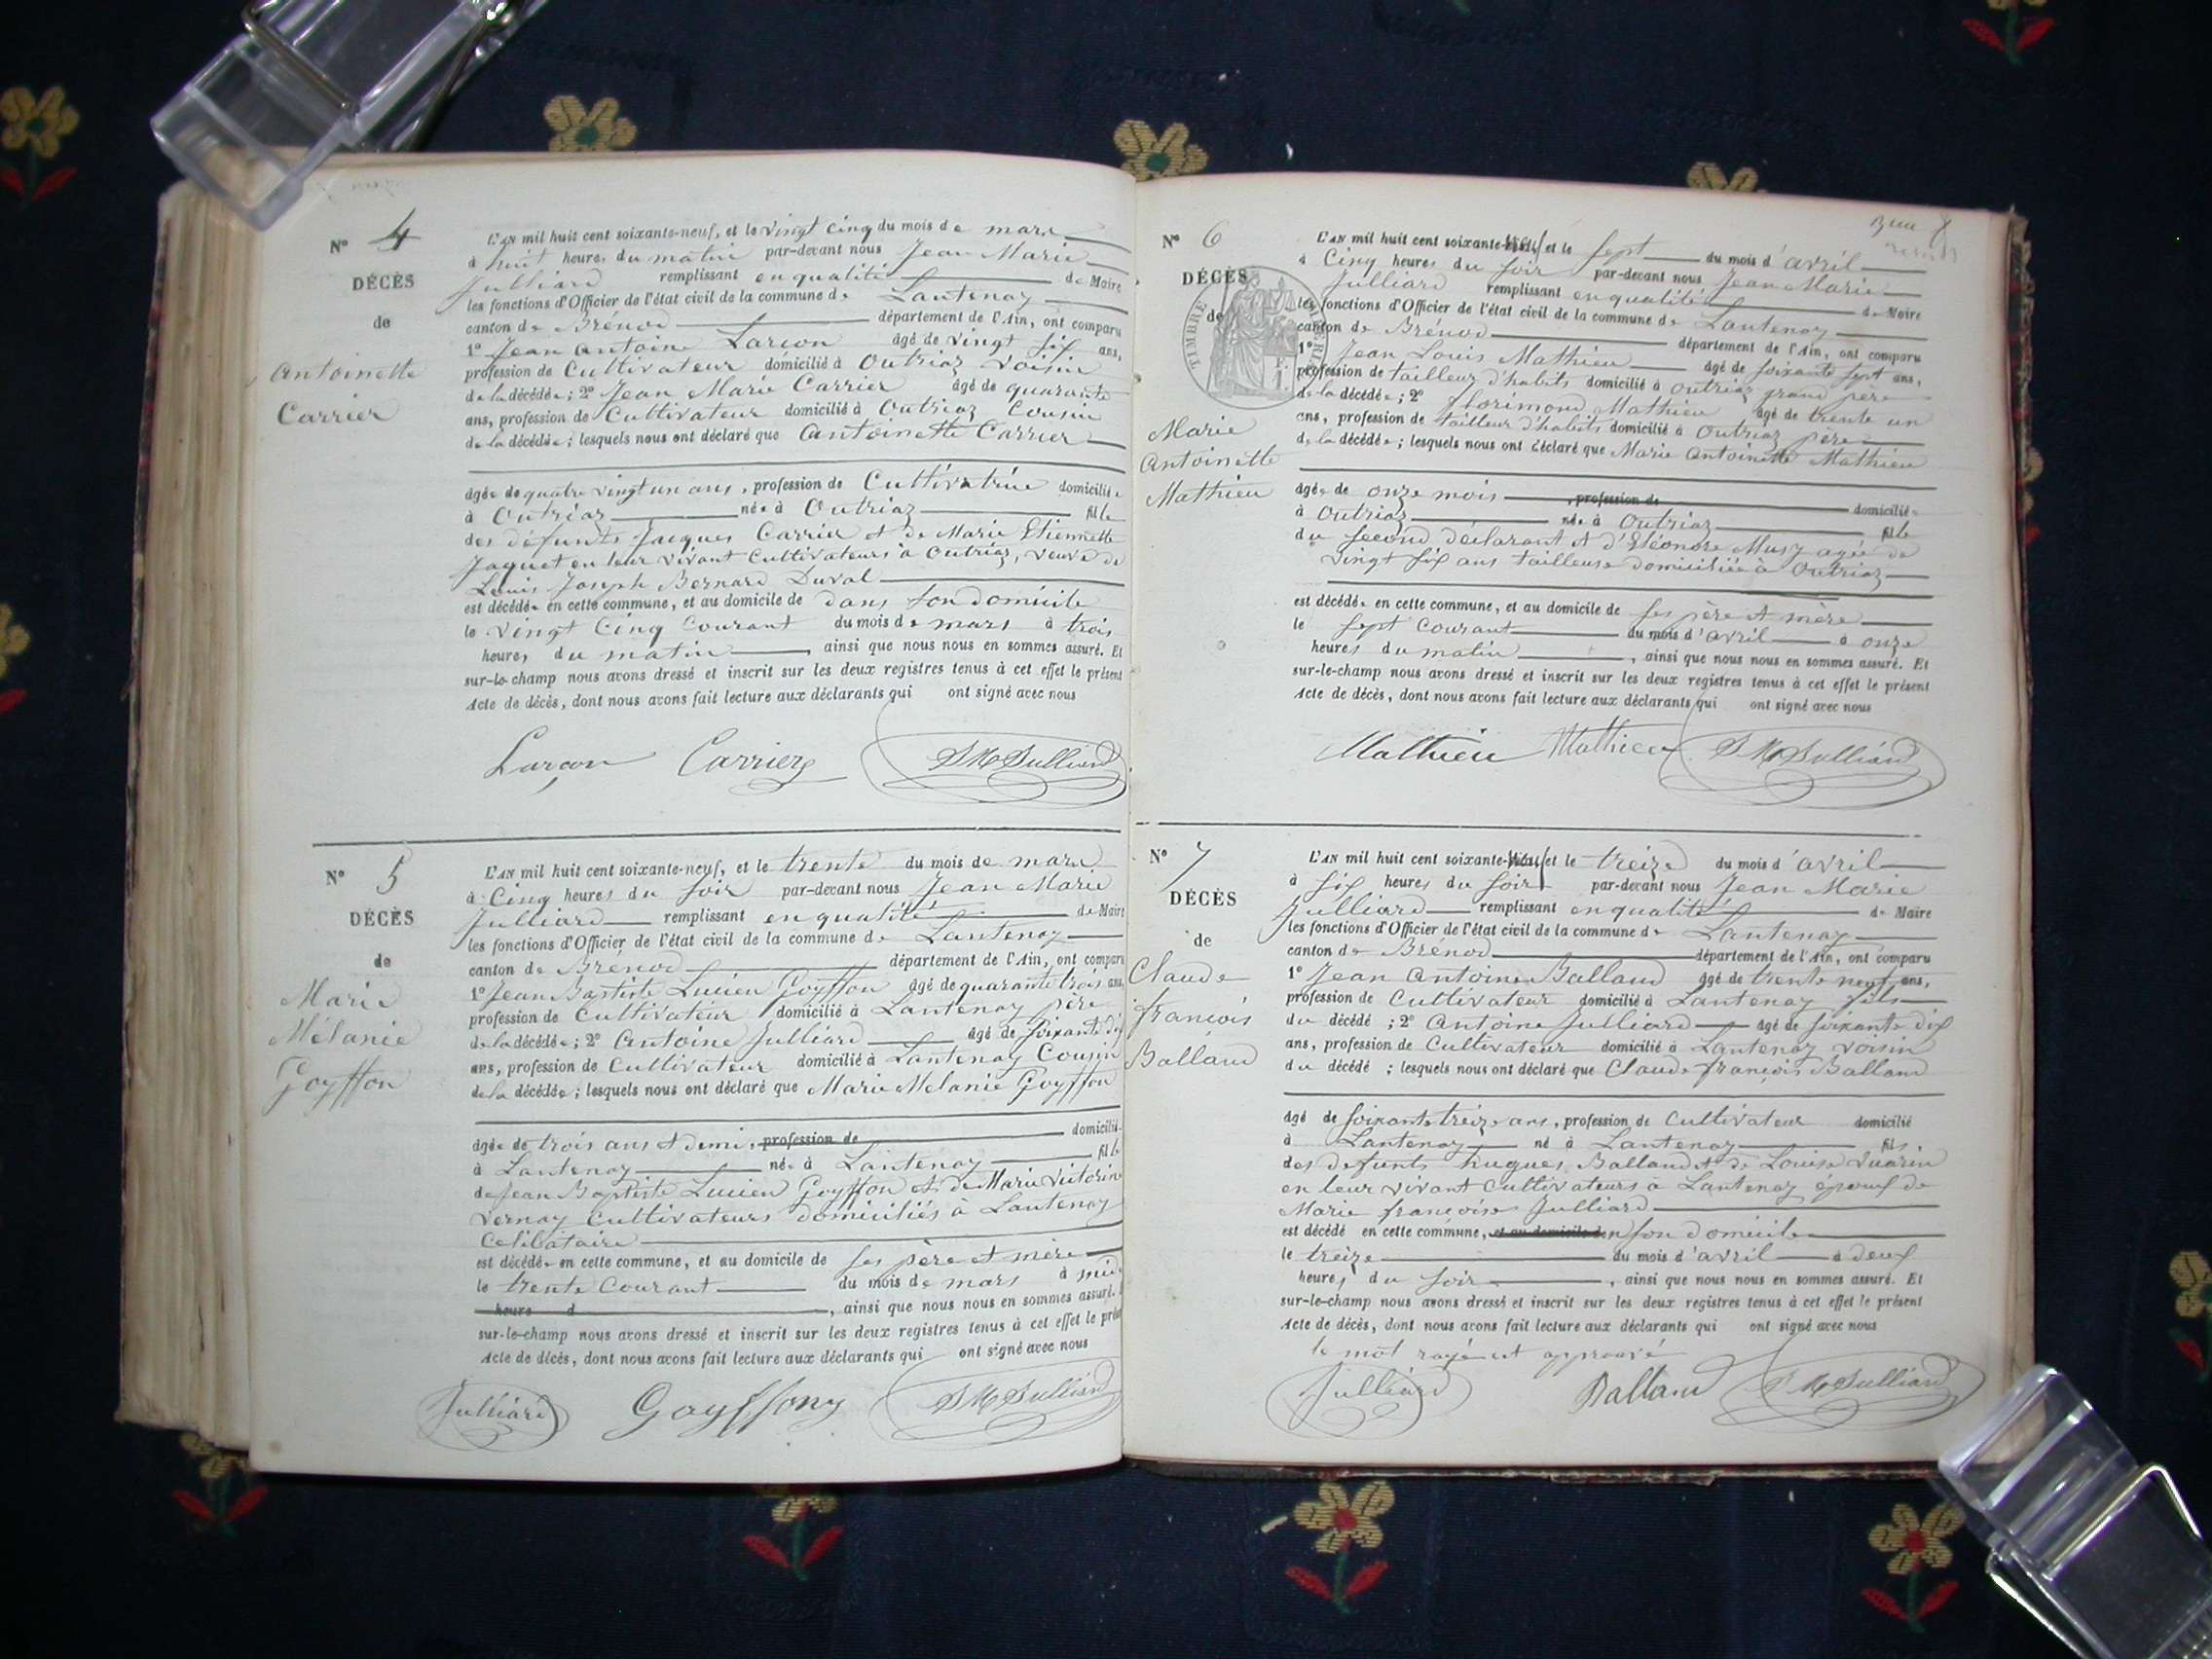 N° 4
DÉCÈS
de
Antoinette
Carrier
L'AN mil huit cent soixante-neuf, et le vingt cinq du mois de mars
à huit heures du matin par-devant nous Jean Marie
Julliard remplissant en qualité de Maire
les fonctions d'Officier de l'état civil de la commune de Lantenay
canton de Brénod département de l'Ain, ont comparu
1° Jean Antoine Larçon âgé de vingt six ans,
profession de Cultivateur domicilié à Outriaz voisin
de la décédée; 2° Jean Marie Carrier âgé de quarante
ans, profession de Cultivateur domicilié à Outriaz Cousin
de la décédée; lesquels nous ont déclaré que Antoinette Carrier
âgée de quatre vingt un ans, profession de Cultivatrice domiciliée
à Outriaz née à Outriaz fille
des défunts Jacques Carrier et de Marie Etiennette
Jaquet en leur vivant Cultivateurs à Outriaz, veuve de
Louis Joseph Bernard Duval
est décédée en cette commune, et au domicile de dans son domicile
le vingt cinq courant du mois de mars à trois
heures du matin, ainsi que nous nous en sommes assuré. Et
sur-le-champ nous avons dressé et inscrit sur les deux registres tenus à cet effet le présent
Acte de décès, dont nous avons fait lecture aux déclarants qui ont signé avec nous
Larçon Carrier JM Julliard
N° 5
DÉCÈS
de
Marie
Mélanie
Goyffon
L'AN mil huit cent soixante-neuf, et le trente du mois de mars
à Cinq heures du soir par-devant nous Jean Marie
Julliard remplissant en qualité de Maire
les fonctions d'Officier de l'état civil de la commune de Lantenay
canton de Brénod département de l'Ain, ont comparu
1° Jean Baptiste Lucien Goyffon âgé de quarante trois ans,
profession de Cultivateur domicilié à Lantenay père
de la décédée; 2° Antoine Julliard âgé de soixante dix
ans, profession de Cultivateur domicilié à Lantenay Cousin
de la décédée; lesquels nous ont déclaré que Marie Mélanie Goyffon
âgée de trois ans et demi, profession de domiciliée
à Lantenay née à Lantenay fille
de Jean Baptiste Lucien Goyffon et de Marie Victorine
Vernay Cultivateurs domiciliés à Lantenay
Célibataire
est décédée en cette commune, et au domicile de ses père et mère
le trente Courant du mois de mars à midi
heure d, ainsi que nous nous en sommes assuré. Et
sur-le-champ nous avons dressé et inscrit sur les deux registres tenus à cet effet le présent
Acte de décès, dont nous avons fait lecture aux déclarants qui ont signé avec nous
Julliard Goyffon JM Julliard
N° 6
DÉCÈS
de
TIMBRE
Marie
Antoinette
Mathieu
L'AN mil huit cent soixante-neuf et le sept du mois d'avril
à Cinq heures du soir par-devant nous Jean Marie
Julliard remplissant en qualité de Maire
les fonctions d'Officier de l'état civil de la commune de Lantenay
canton de Brénod département de l'Ain, ont comparu
1° Jean Louis Mathieu âgé de soixante sept ans,
profession de tailleur d'habits domicilié à Outriaz grand père
de la décédée; 2° florimond Mathieu âgé de trente un
ans, profession de tailleur d'habits domicilié à Outriaz père
de la décédée; lesquels nous ont déclaré que Marie Antoinette Mathieu
âgée de onze mois, profession de domiciliée
à Outriaz née à Outriaz fille
du second déclarant et d'Eléonore Musy agée de
vingt six ans tailleuse domiciliée à Outriaz
est décédée en cette commune, et au domicile de ses père et mère
le sept Courant du mois d'avril à onze
heures du matin, ainsi que nous nous en sommes assuré. Et
sur-le-champ nous avons dressé et inscrit sur les deux registres tenus à cet effet le présent
Acte de décès, dont nous avons fait lecture aux déclarants qui ont signé avec nous
Mathieu Mathieu JM Julliard
N° 7
DÉCÈS
de
Claude
françois
Balland
L'AN mil huit cent soixante-neuf et le treize du mois d'avril
à six heures du soir par-devant nous Jean Marie
Julliard remplissant en qualité de Maire
les fonctions d'Officier de l'état civil de la commune de Lantenay
canton de Brénod département de l'Ain, ont comparu
1° Jean Antoine Balland âgé de trente neuf ans,
profession de Cultivateur domicilié à Lantenay fils
du décédé; 2° Antoine Julliard âgé de soixante dix
ans, profession de Cultivateur domicilié à Lantenay voisin
du décédé; lesquels nous ont déclaré que Claude françois Balland
âgé de soixante treize ans, profession de Cultivateur domicilié
à Lantenay né à Lantenay fils
des défunts hugues Balland et de Louise
en leur vivant Cultivateurs à Lantenay époux de
Marie françoise Julliard
est décédé en cette commune, et au domicile de en son domicile
le treize du mois d'avril à deux
heures du soir, ainsi que nous nous en sommes assuré. Et
sur-le-champ nous avons dressé et inscrit sur les deux registres tenus à cet effet le présent
Acte de décès, dont nous avons fait lecture aux déclarants qui ont signé avec nous
le mot rayé est approuvé
Julliard Balland JM Julliard